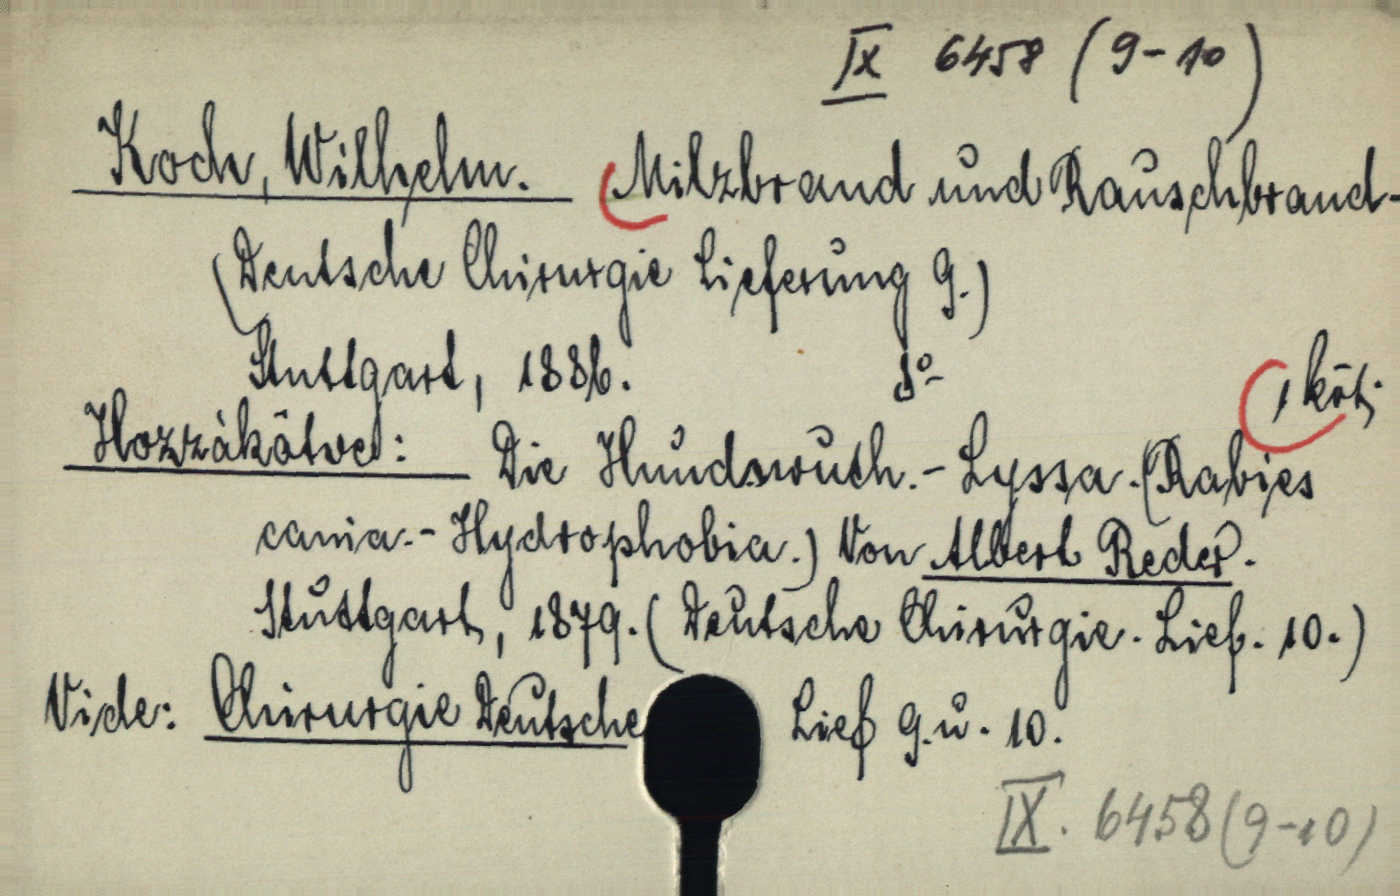 IX 6458 (9-10)
Koch, Wilhelm. Milzbrand und Rauschbrand-
(Deutsche Chirurgie Lieferung 9.)
Stuttgart, 1886. 8°
1 köt.
Hozzákötve: Die Hundswuth.- Lyssa.(Rabies
cania.- Hydrophobia.) Von Albert Reder.
Stuttgart, 1879. (Deutsche Chirurgie. Lief. 10.)
Vide: Chirurgie Deutsche Lief 9. u. 10.
IX. 6458 (9-10)